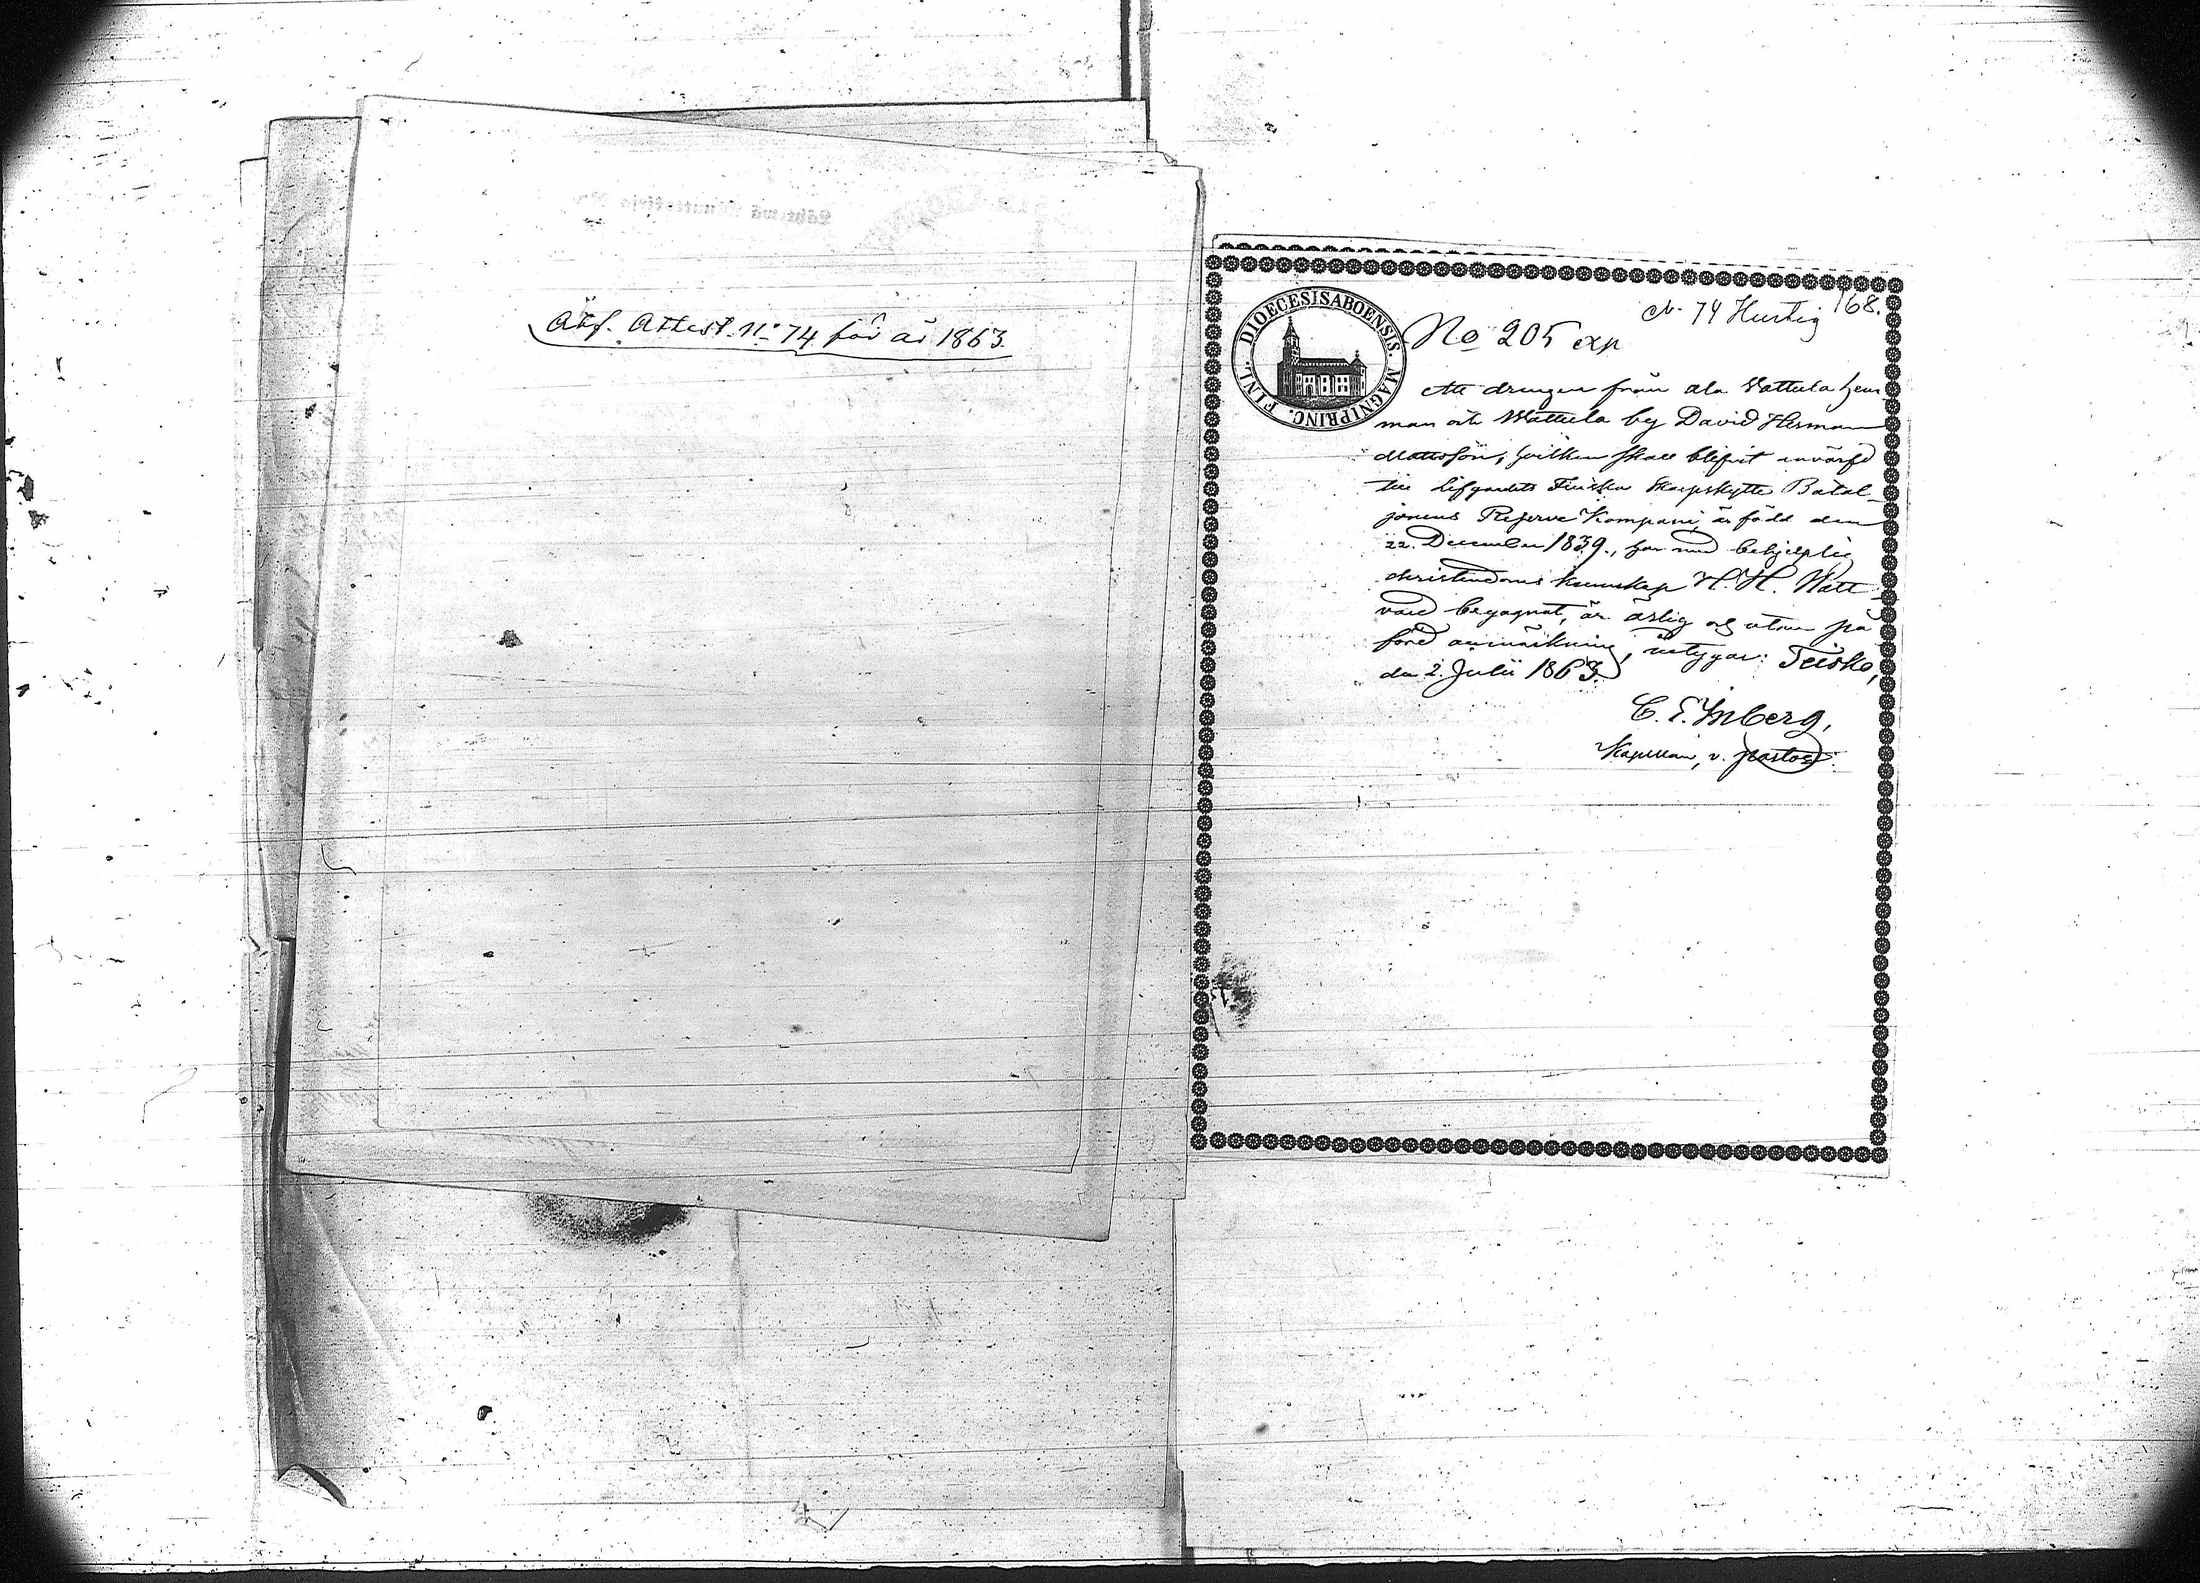 Åbf. Attest. No 74 för år 1863.
DIOECESIS ABOENSIS. MAGNI PRINC. FINL.
N. 74 Hurtig 168.
No 205 exp
Att drengen från Ala Wattula hem
man och Wattula by David Herman
Mattsson, hvilken skall blifvit anvärfd
till Lifgardets Finska Skarpskytte Batal-
jonens Reserve Kompani, är född den
22. December 1839., har med behjelplig
christendoms kunskap H. H. Natt
vard begagnat, är ärlig och utan på
förd anmärkning, intygar: Teisko,
den 2. Julii 1863.
C. E. Inberg,
Kapellan, v. pastor.